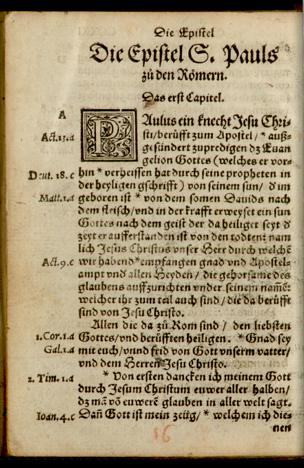 Die Epistel
Die Epistel S. Pauls
zů den Römern.
Das erst Capitel.
A
PAulus ein knecht Jesu Chri-
Act.13.a
sti/berüfft zum Apostel/ * auß-
gesündert zupredigen dz Euan
gelion Gottes (welches er vor-
Deut. 18.c
hin * verheissen hat durch seine propheten in
der heyligen gschrifft) von seinem sun/ d'im
Matt.1.a
geboren ist * von dem somen Dauids nach
dem fleisch/vnd in der krafft erweyset ein sun
Gottes nach dem geist der da heiliget seyt d'
zeyt er aufferstanden ist von den todten namm
lich Jesus Christus vnser Herr durch welchē
Act.9.c
wir habend *empfangen gnad vnd Apostel-
ampt vnd allen Heyden/ die gehorsame des
glaubens auffzurichten vnder seinem namē:
welcher ihr zum teil auch sind/die da berüfft
sind von Jesu Christo.
Allen die da zů Rom sind / den liebsten
1.Cor.1.a
Gottes/vnd berüfften heiligen. * Gnad sey
Gal.1.a
mit euch/vnnd frid von Gott vnserm vatter/
vnd dem Herren Jesu Christo.
2. Tim. 1.a
* Von ersten dancken ich meinem Gott
durch Jesum Christum euwer aller halben/
dz mā vō euwerē glauben in aller welt sagt.
Ioan.4.c
Dañ Gott ist mein zeüg/ * welchem ich die-
nen